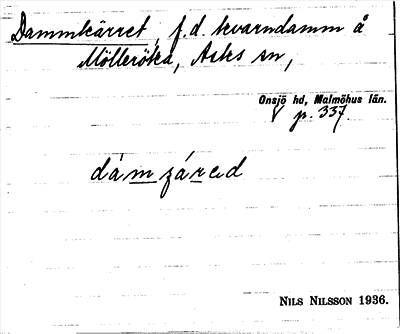 Dammkärret, f.d. kvarndamm å
Mölleröka, Asks sn,
Onsjö hd, Malmöhus län.
p. 337.
NILS NILSSON 1936.